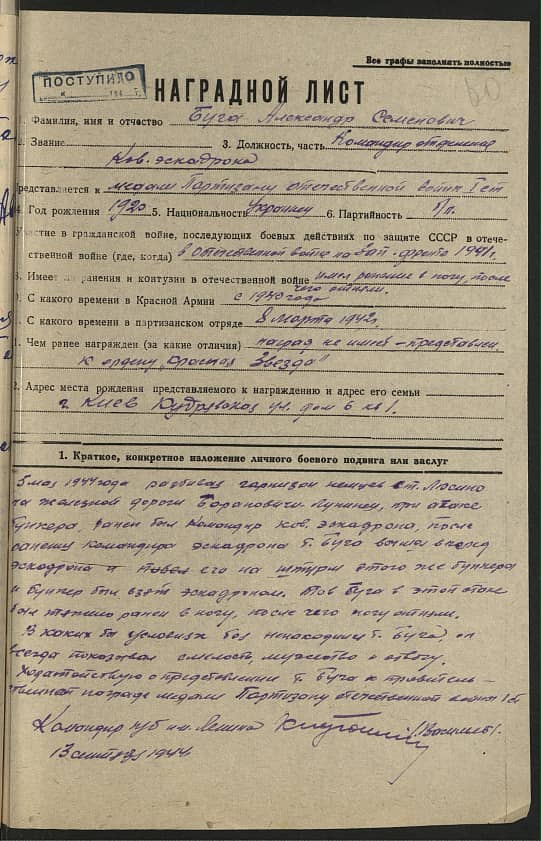 Все графы заполнять полностью
ПОСТУПИЛО
НАГРАДНОЙ ЛИСТ
Фамилия, имя и отчество Буга Александр Семенович
2. Звание 3. Должность, часть Командир отделения
Кав. эскадрона
редставляется к медали Партизану отечественной войны I ст
4. Год рождения 1920 5. Национальность Украинец 6. Партийность б/п.
Участие в гражданской войне, последующих боевых действиях по защите СССР в отече-
ственной войне (где, когда) в отечественной войне на Зап. фронте 1941г.
8. Имеет ли ранения и контузии в отечественной войне имел ранение в ногу, после
чего отняли.
С какого времени в Красной Армии с 1940 года
С какого времени в партизанском отряде 8 марта 1942г.
Чем ранее награжден (за какие отличия) наград не имеет – представлен
к ордену „Красная Звезда"
2. Адрес места рождения представляемого к награждению и адрес его семьи
г. Киев ул. дом 6 кв 1.
1. Краткое, конкретное изложение личного боевого подвига или заслуг
5 мая 1944 года разбивая гарнизон немцев ст. Люсино
на железной дороги Барановичи-Лунинец, при атаке
бункера, ранен был командир кав. эскадрона, после
ранения командира эскадрона т. Буга вышел вперед
эскадрона и повел его на штурм этого же бункера
и бункер был взят эскадроном. Тов Буга в этой атаке
был тяжело ранен в ногу, после чего ногу отняли.
В каких бы условиях боя не находился т. Буга, он
всегда показывал смелость, мужество и отвагу.
Ходатайствую о представлении т. Буга к правитель-
ственной награде медали Партизану отечественной войны I ст
Командир п/б им. Ленина
13 сентября 1944